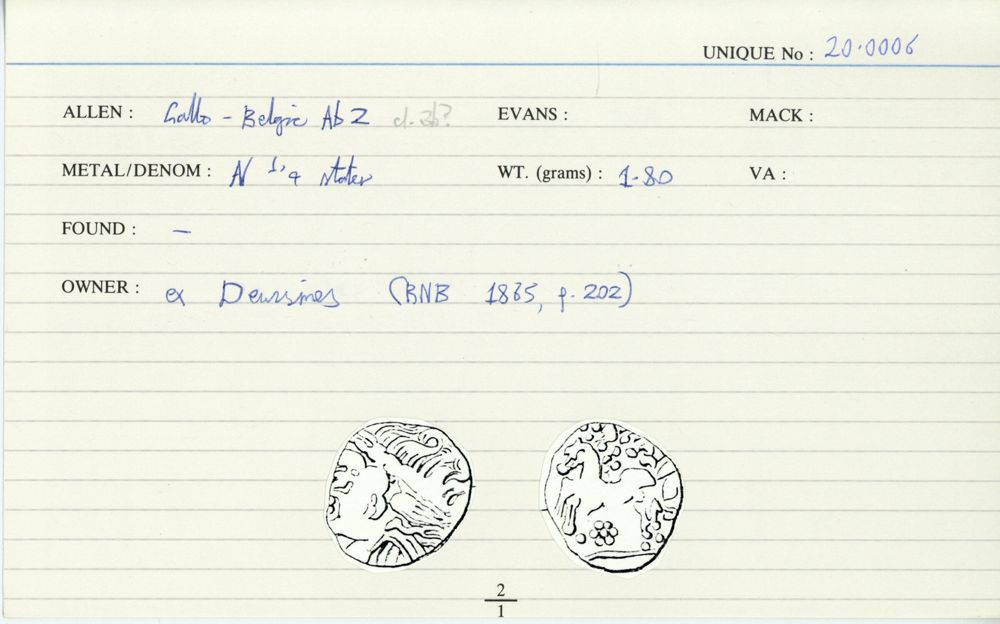 UNIQUE No : 20.0006
ALLEN : Gallo-Belgic Ab2 cl. 2b? EVANS : MACK :
METAL/DENOM : AV 1/4 stater WT. (grams) : 1.80 VA :
FOUND : —
OWNER : ex (RNB 1885, p. 202)
2
1